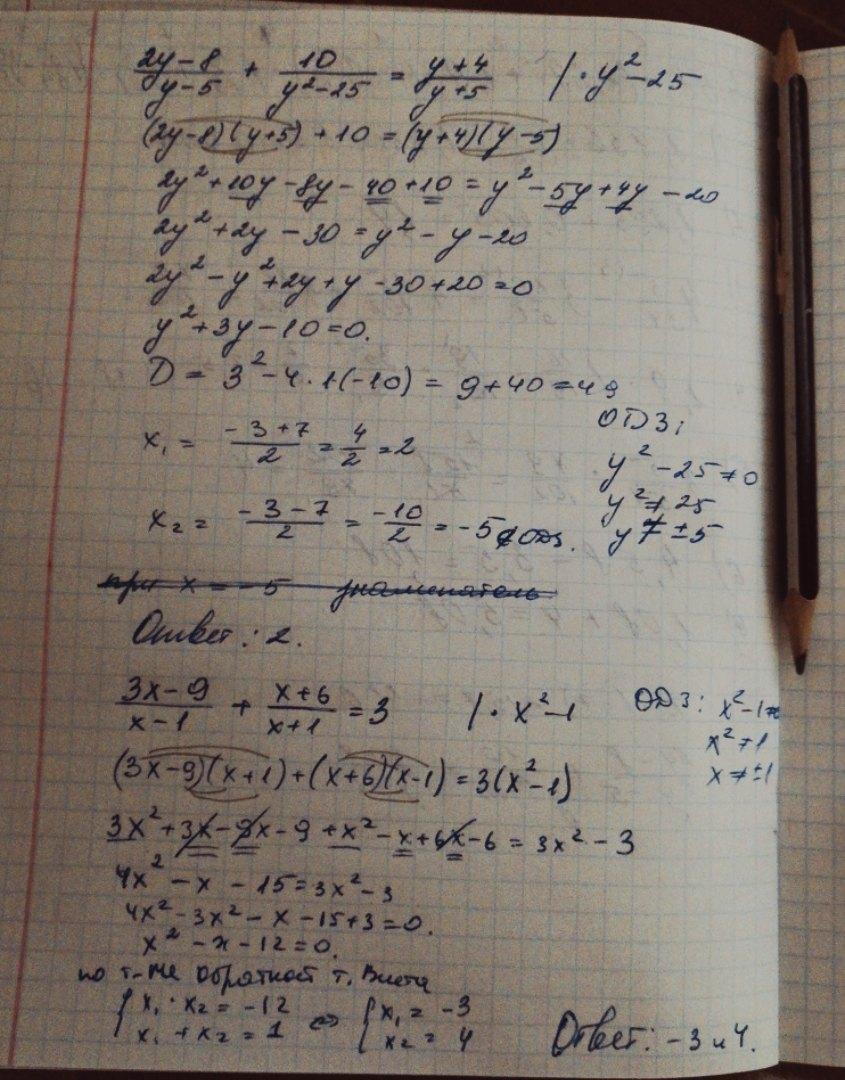 (2y-8)/(y-5) + 10/(y²-25) = (y+4)/(y+5) /· y²-25
(2y-8)(y+5)+10 = (y+4)(y-5)
2y²+10y-8y-40+10 = y²-5y+4y-20
2y²+2y-30=y²-y-20
2y²-y²+2y+y-30+20=0
y²+3y-10=0.
D = 3²-4·1(-10) = 9+40=49
x₁ = (-3+7)/2 = 4/2 = 2
ОДЗ:
y²-25≠0
y²≠25
y≠±5
x₂ = (-3-7)/2 = -10/2 = -5 ∉ ОДЗ.
при x = -5 знаменатель
Ответ: 2.
(3x-9)/(x-1) + (x+6)/(x+1) = 3 /· x²-1 ОДЗ: x²-1≠0
x²≠1
x≠±1
(3x-9)(x+1)+(x+6)(x-1)=3(x²-1)
3x²+3x-9x-9+x²-x+6x-6=3x²-3
4x²-x-15=3x²-3
4x²-3x²-x-15+3=0.
x²-x-12=0.
по т-ме обратной т. Виета
{x₁·x₂=-12 ⇔ {x₁=-3
x₁+x₂=1 x₂=4
Ответ: -3 и 4.